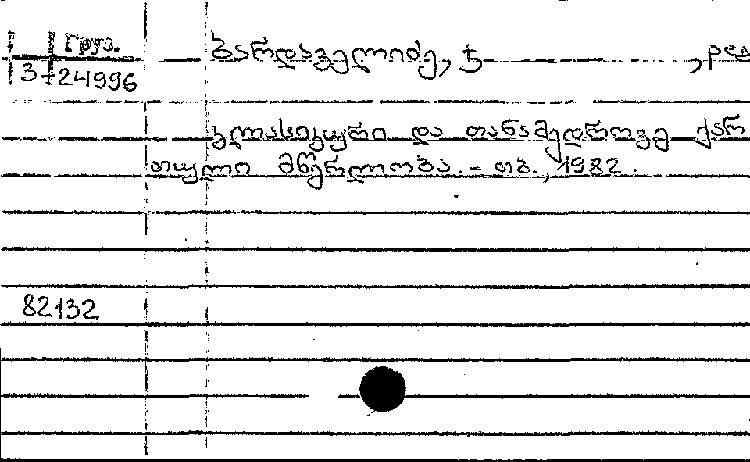 Груз.
3-24996
ბარდაველიძე, ჯ , ред
კლასიკური და თანამედროვე ქარ
თული მწერლობა. - თბ., 1982.
82132